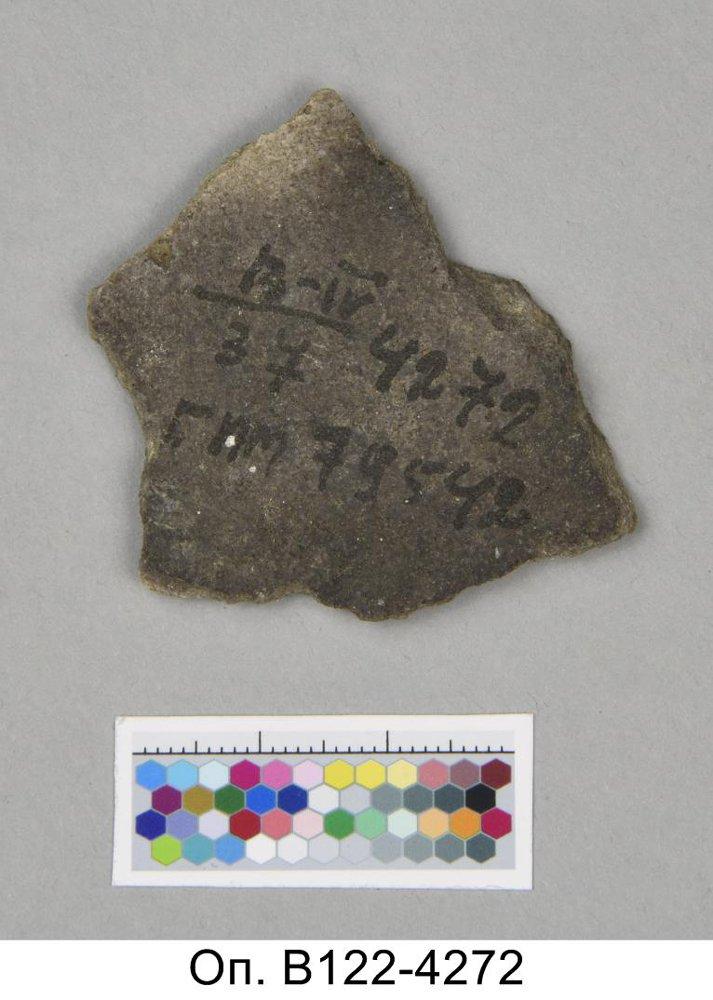 В-IV
37 4272
ГИМ 79542
Оп. В122-4272